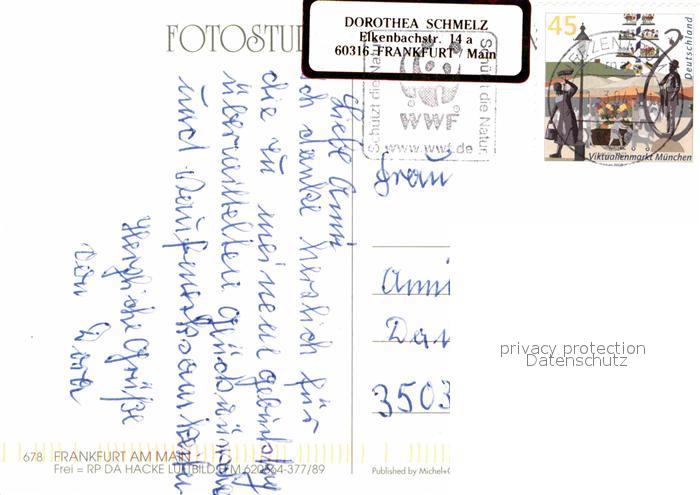 FOTOSTU
DOROTHEA SCHMELZ
Elkenbachstr. 14 a
60316 FRANKFURT / Main
Schützt die Natur
WWF
Schützt die Natur
www.wwf.de
45
Deutschland
Viktualienmarkt München
Liebe Anni
ich danke herzlich für
die zu meinem Geburtstag
übermittelten Glückwünsche
und Aufmerksamkeiten
Herzliche Grüße
von Dora
Frau
Anni
Dau
3503
privacy protection
Datenschutz
678 FRANKFURT AM MAIN
Frei = RP DA HACKE LUFTBILD FFM 620/64-377/89
Published by Michel+